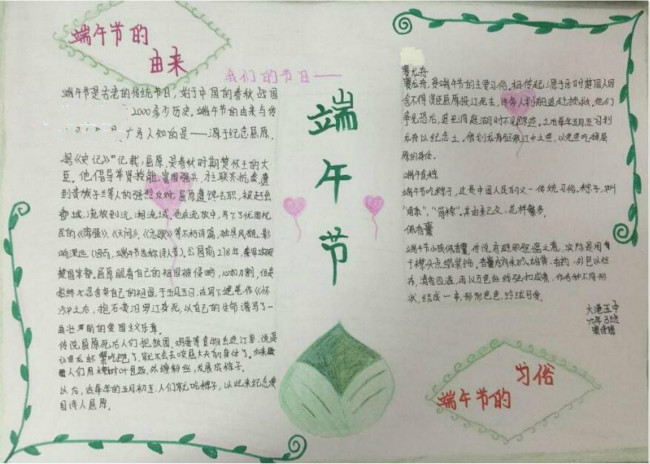 端午节的
由来
我们的节日——
端午节是古老的传统节日，始于中国的春秋战国
2000多年历史。端午节的由来与传
广为人知的是——源于纪念屈原。
《史记》记载，屈原，是春秋时期楚怀王的大
臣。他倡导举贤授能，富国强兵，力主联齐抗秦，遭
到贵族子兰等人的强烈反对，屈原遭馋去职，被赶出
都城，流放到沅、湘流域。他在流放中，写下了忧国忧民
的《离骚》、《天问》、《九歌》等不朽诗篇，独具风貌，影
响深远（因而，端午节也称诗人节）。公元前278年，秦军攻破
楚国京都。屈原眼看自己的祖国被侵略，心如刀割，但是
始终不忍舍弃自己的祖国，于五月五日，在写下绝笔作《怀
沙》之后，抱石投汨罗江身死，以自己的生命谱写了一
曲壮丽的爱国主义乐章。
传说屈原死后人们把饭团、鸡蛋等食物丢进江里，说是
人们用楝树叶包饭，外缠彩丝，发展成粽子。
以后，在每年的五月初五，人们吃粽子，以此来纪念爱
国诗人屈原。
端午节
赛龙舟
赛龙舟，是端午节的主要习俗。相传起源于古时楚国人因
舍不得贤臣屈原投江死去，许多人划船追赶拯救。他们
争先恐后，追至洞庭湖时不见踪迹。之后每年五月五日划
龙舟以纪念之。借划龙舟驱散江中之鱼，以免鱼吃掉屈
原的身体。
端午食粽
端午节吃粽子，这是中国人民的又一传统习俗。粽子，又叫
“角黍”、“筒粽”。其由来已久，花样繁多。
佩香囊
端午节小孩佩香囊，传说有避邪驱瘟之意，实际是用于
襟头点缀装饰。香囊内有朱砂、雄黄、香药，外包以丝
布，清香四溢，再以五色丝线弦扣成索，作各种不同形
状，结成一串，形形色色，玲珑可爱。
大港五中
端午节的
习俗